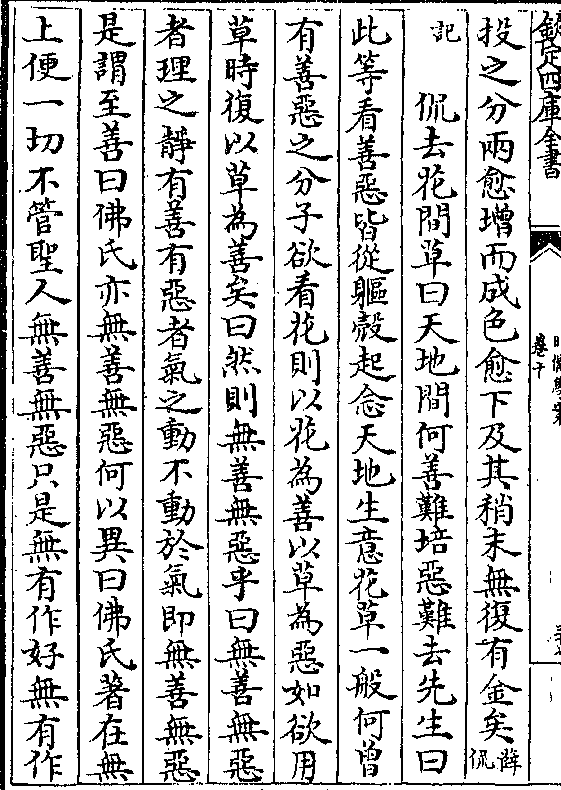 欽定四庫全書
明儒學案
卷十
投之分兩愈增而成色愈下及其稍末無復有金矣薛侃
記
侃去花間草曰天地間何善難培惡難去先生曰
此等看善惡皆從軀殼起念天地生意花草一般何曾
有善惡之分子欲看花則以花為善以草為惡如欲用
草時復以草為善矣曰然則無善無惡乎曰無善無惡
者理之靜有善有惡者氣之動不動於氣即無善無惡
是謂至善曰佛氏亦無善無惡何以異曰佛氏著在無
上便一切不管聖人無善無惡只是無有作好無有作